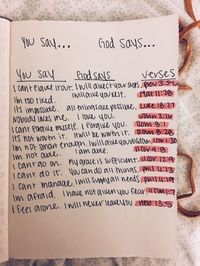 You Say... God Says...
You Say God Says verses
I can't figure it out. I will direct your steps. Prov 3:5-6
I'm too tired. I will give you rest. Mat 11:28
It's impossible. all things are possible. Luke 18:27
Nobody loves me. I love you. John 3:16
I can't forgive myself. I forgive you. Rom 8:1
It's not worth it. It will be worth it. Rom 8:28
I'm not smart enough. I will give you wisdom. 1cor 1:30
I'm not able. I am able. 2cor 9:8
I can't go on. My grace is sufficient. 2cor 12:9
I can't do it. You can do all things. phil 4:13
I can't manage. I will supply all needs. phil 4:19
I'm afraid. I have not given you fear. 2Tim 1:7
I feel alone. I will never leave you. Heb 13:5